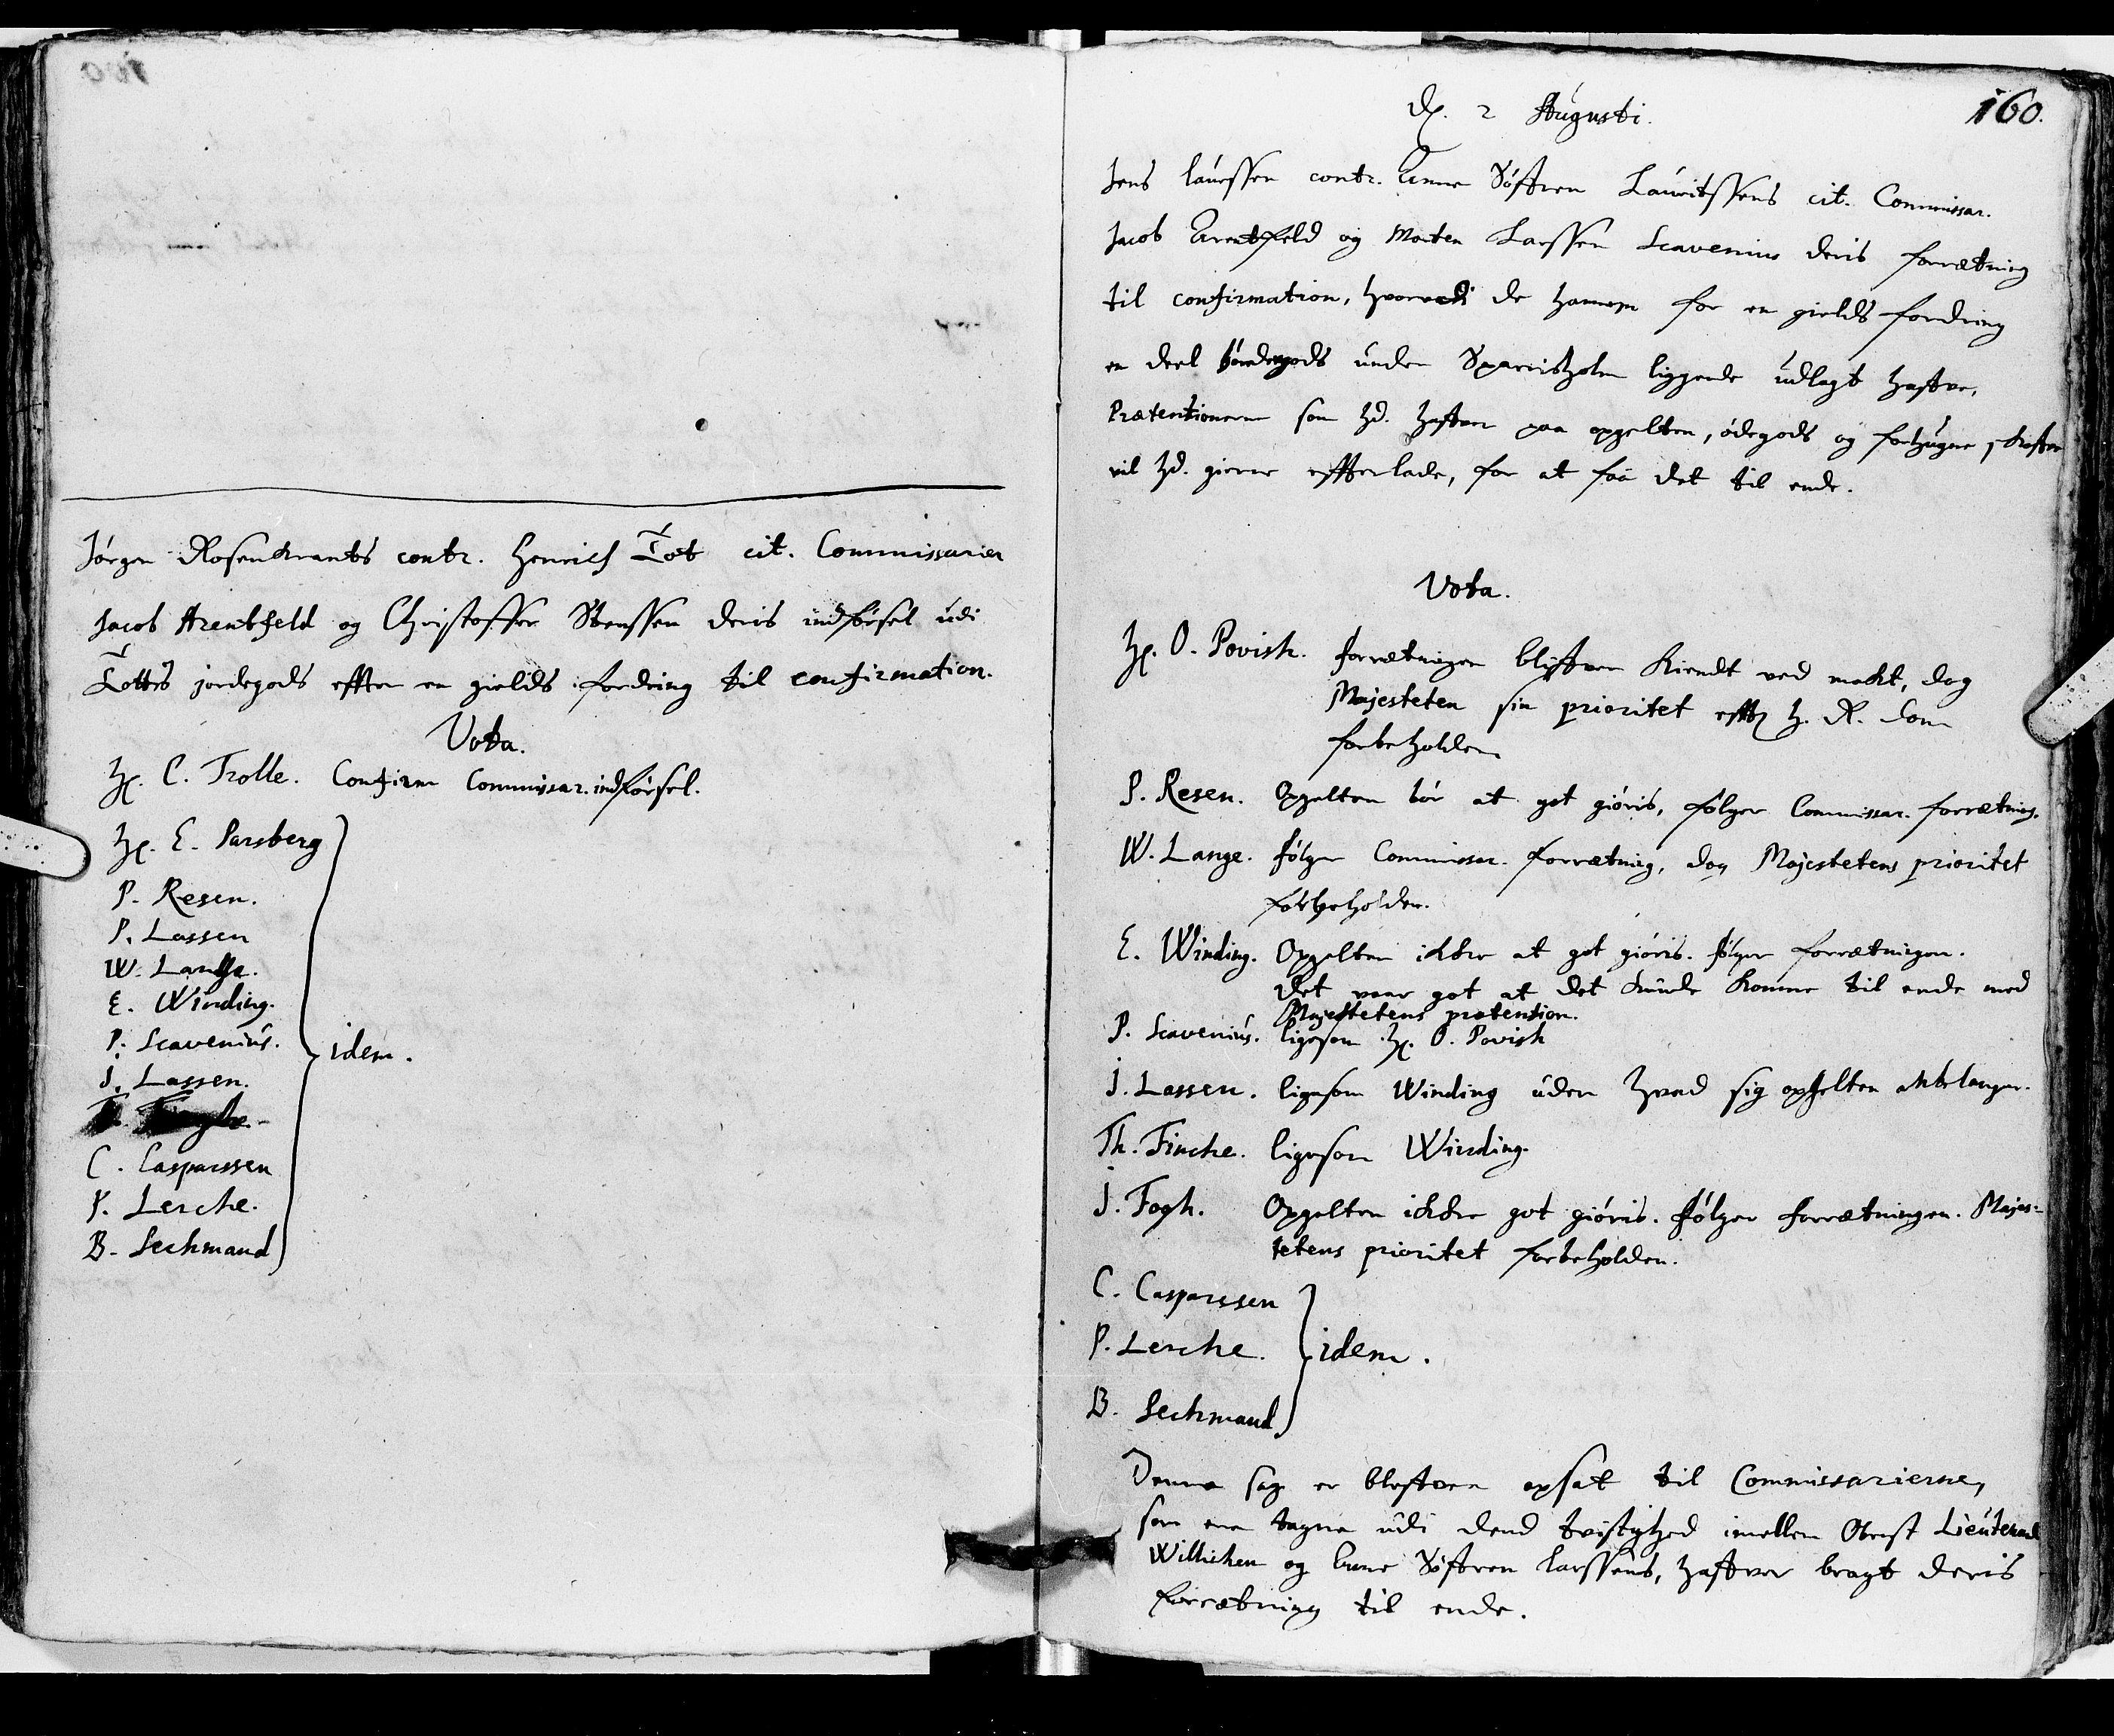 Jørgen Rosenkrants contr. Henrich Tot cit. Commissarier
Jacob Arentfeld og Christoffer Steenssen deris indførsel udi
Totts jordegods effter en gields fordring til confirmation.
Vota.
H. C. Trolle. Confirm Commissar. indførsel.
H. E. Parsberg
P. Resen.
P. Lassen
W. Lange.
E. Winding.
P. Scavenius.
idem.
J. Lassen.
C. Casparssen
P. Lerche.
B. Lechmand
160.
D. 2 Augusti.
Jens laurssen contr. Anne Søffren Lauritssens cit. Commissar.
Jacob Arentfeld og Morten Larssen Scavenius deris forrætning
til confirmation, hvorudi de hannem for en gields fordring
en deel bøndergods under Sparrisholm liggende udlagt haffve,
Prætentionerne som hd. haffver paa opgelten, ødegods og forhugne skoffve
vil hd. gierne effterlade, for at faa det til ende.
Vota.
H. O. Povish. forrætningen bliffver kiendt ved makt, dog
Majesteten sin prioritet efft. H. R. dom
forbeholden
P. Resen. Opgelten bør at got giøris, følger Commissar. forrætning.
W. Lange. følger Commissar. forrætning, dog Majestetens prioritet
forbeholden.
E. Winding. Opgelten ickke at got giøris. følger forrætningen.
Det vaar got at det kunde komme til ende med
Majestetens prætension.
P. Scavenius. ligesom H. O. Povish
J. Lassen. ligesom Winding uden hvad sig opgelten anbelanger.
Th. Fincke. ligesom Winding.
J. Fogh. Opgelten ickke got giøris. følger forrætningen. Majes-
tetens prioritet forbeholden.
C. Casparssen
P. Lerche. idem.
B. Lechmand
Denne sag er bleffven opsat til Commissarierne,
som ere tagne udi dend tvistighed imellem Obrist Lieutenant
Willichen og Anne Søffren Larssens, haffver bragt deris
forrætning til ende.